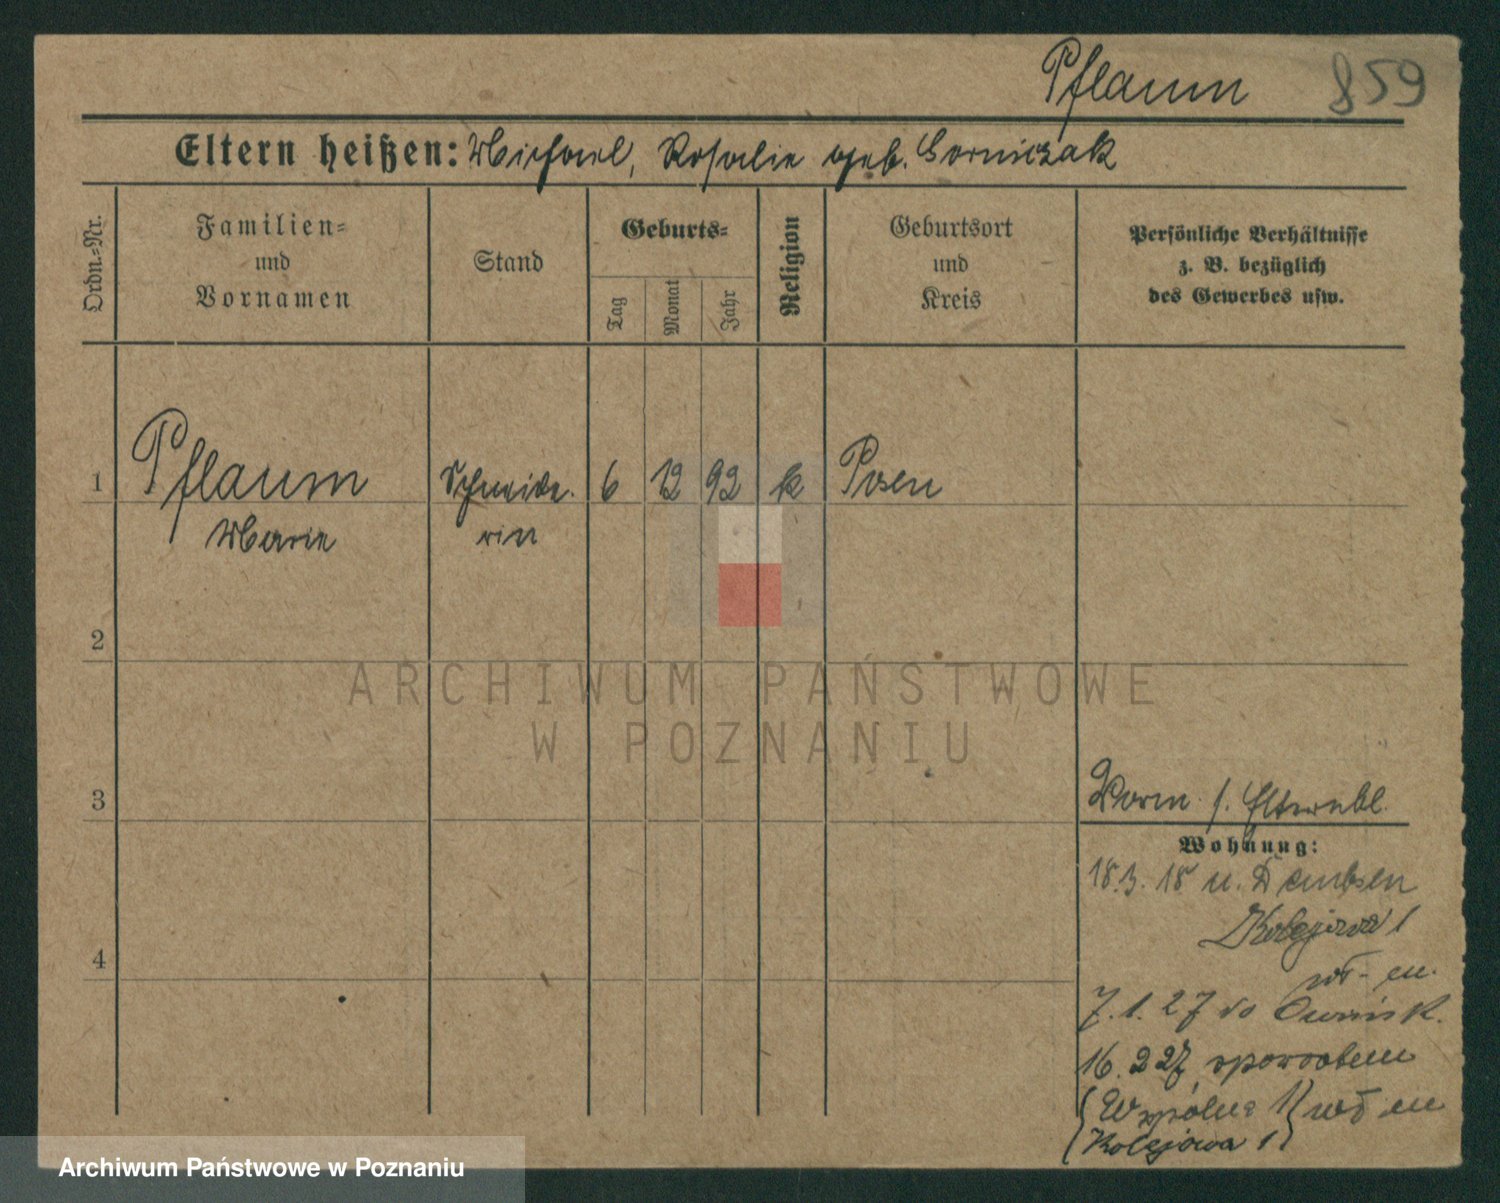 Pflaum 859
Eltern heißen: Michael, Rosalie geb. Gorniczak
Ordn.-Nr.
Familien-
und
Vornamen
Stand
Geburts-
Tag
Monat
Jahr
Religion
Geburtsort
und
Kreis
Persönliche Verhältnisse
z. B. bezüglich
des Gewerbes usw.
1 Pflaum Schneide- 6 12 92 k Posen
Marie rin
2
ARCHIWUM PAŃSTWOWE
W POZNANIU
3
Vorm. s. Elternbl.
Wohnung:
18.3.18 n. Dembsen
Kolejowa 1
4
wł- m.
7.1.27 do Owińsk.
16.2 27 spowrotem
Wspólna 1 wł m
Kolejowa 1
Archiwum Państwowe w Poznaniu